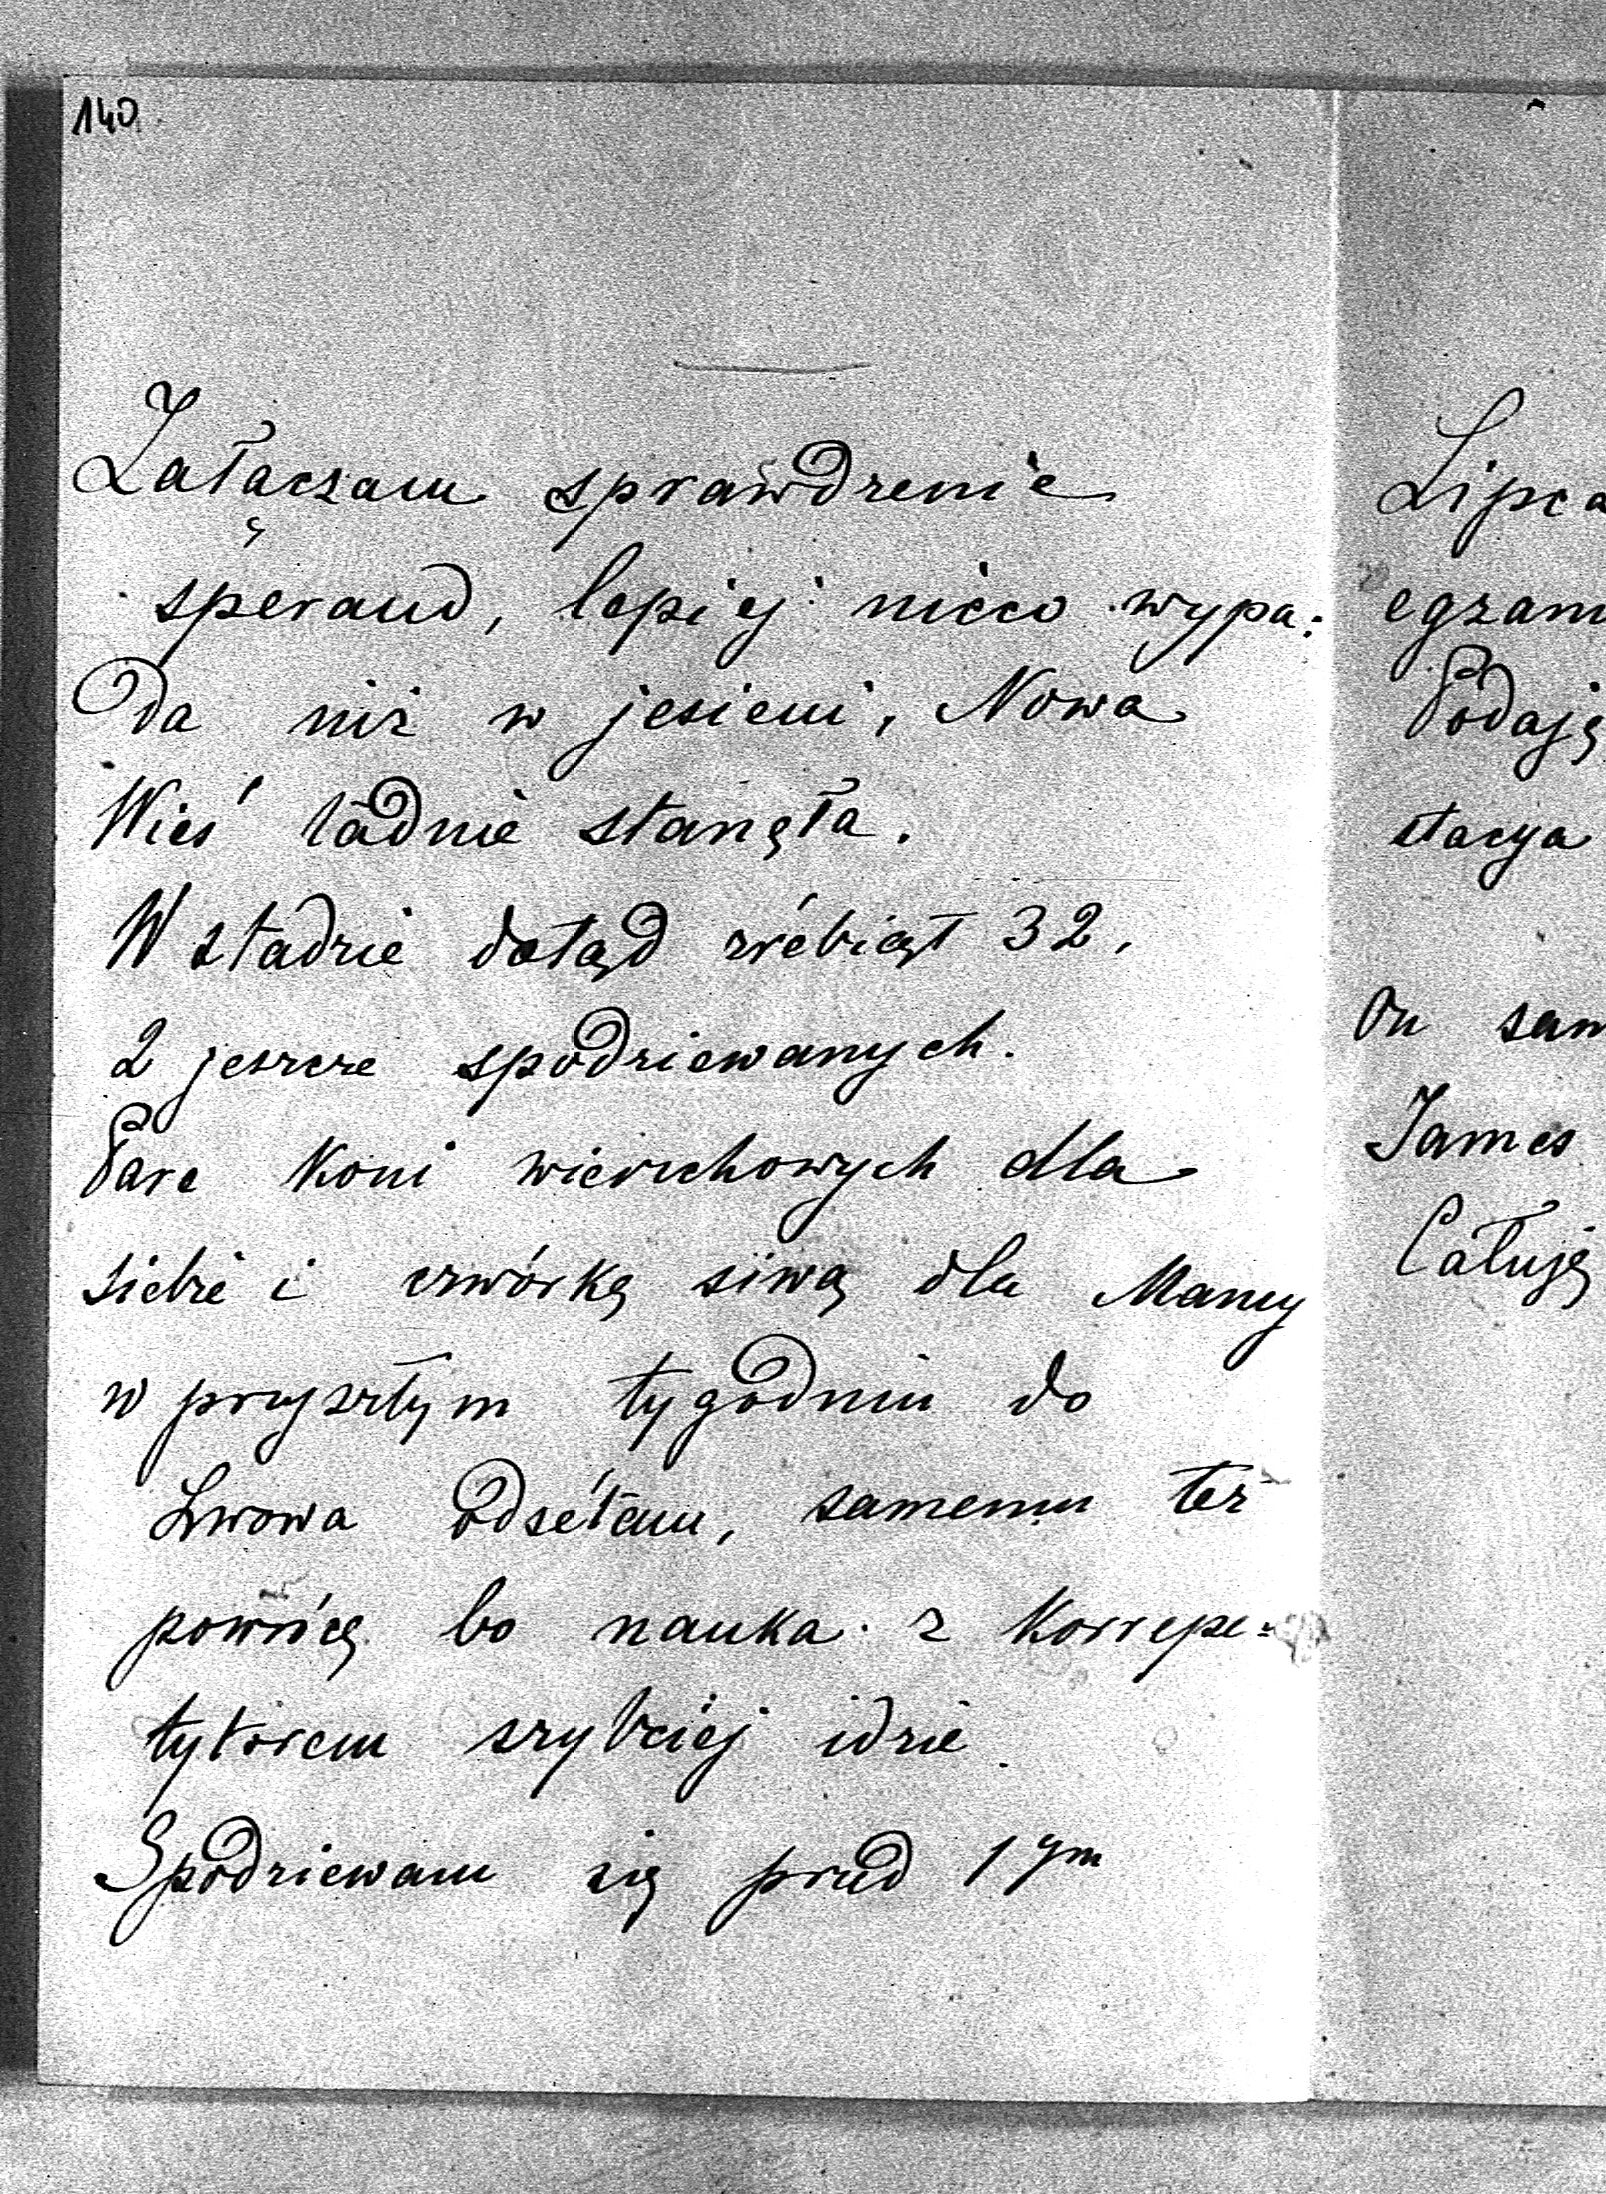 140
Załączam sprawdzenie
sperand, lepiej nieco wypa:
da niż w jesieni, Nowa
Wieś ładnie stanęła.
W stadzie dotąd źrébiąt 32,
2 jeszcze spodziewanych.
Parę koni wierzchowych dla
siebie i czwórkę siwą dla Mamy
w przyszłym tygodniu do
Lwowa odséłam, samemu też
powrócę bo nauka z Korrepe=
tytorem szybciej idzie.
Spodziewam się przed 17m
Lipca
egzam
Podaję
stacya
On sam
James
Całuję